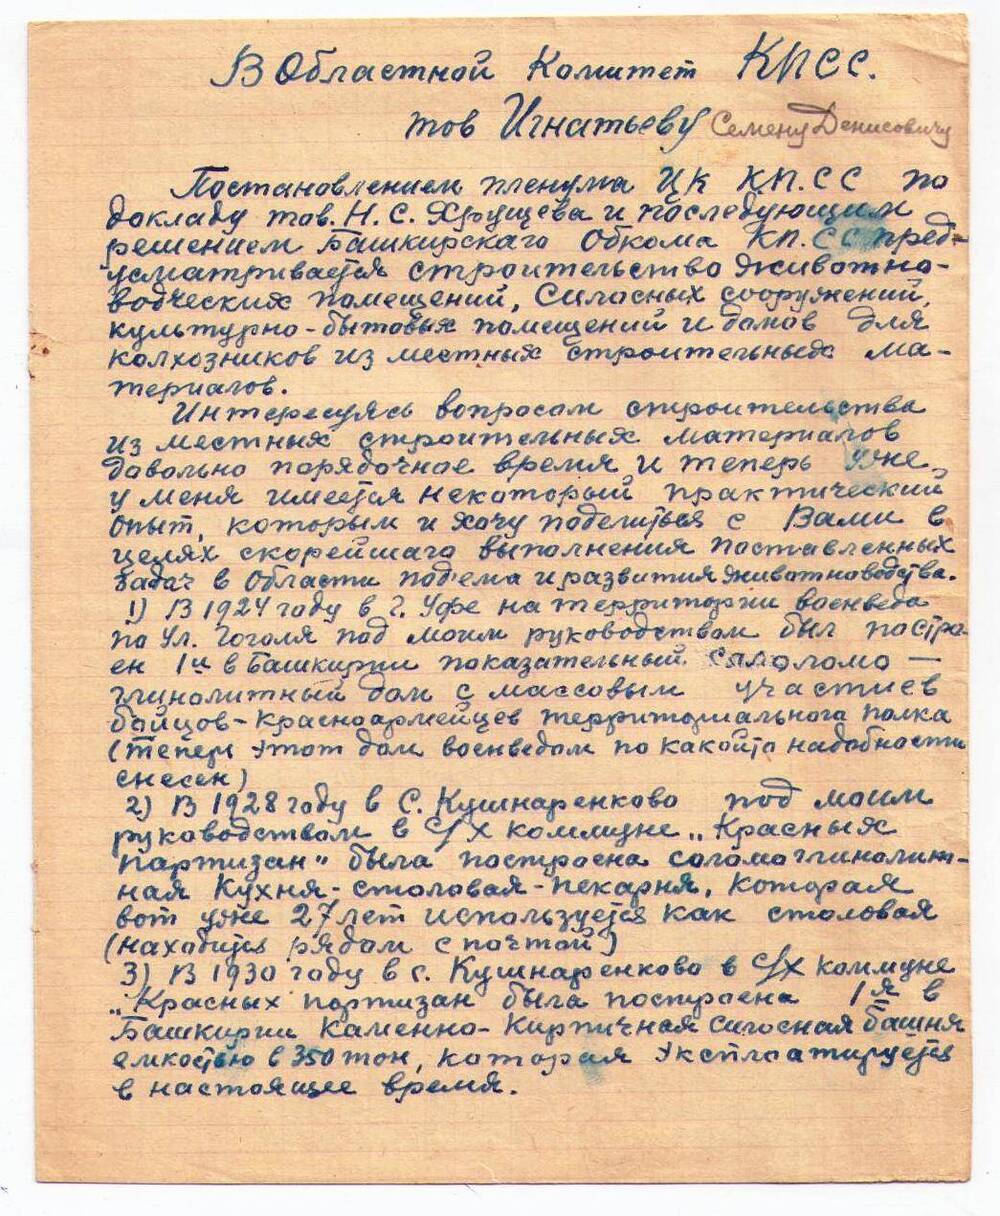 В Областной Комитет КПСС.
тов Игнатьеву Семену Денисовичу
Постановлением пленума ЦК К.П.СС по
докладу тов. Н.С. Хрущева и последующим
решением Башкирского Обкома КП.СС пред-
усматривается строительство животно-
водческих помещений, Силосных сооружений,
культурно-бытовых помещений и домов для
колхозников из местных строительных ма-
териалов.
Интересуясь вопросом строительства
из местных строительных материалов
довольно порядочное время и теперь уже,
у меня имеется некоторый практический
опыт, которым и хочу поделиться с Вами в
целях скорейшаго выполнения поставленных
задач в области под'ема и развития животноводства.
1) В 1924 году в г. Уфе на территории военведа
по ул. Гоголя под моим руководством был постро-
ен 1й в Башкирии показательный соломо —
глинолитный дом с массовым участиев
бойцов-красноармейцев территориального полка
(теперь этот дом военведом по какойто надобности
снесен)
2) В 1928 году в с. Кушнаренково под моим
руководством в с/х коммуне „Красных
партизан" была построена соломоглинолит-
ная Кухня-столовая-пекарня, которая
вот уже 27 лет используется как столовая
(находится рядом с почтой)
3) В 1930 году в с. Кушнаренково в с/х коммуне
„Красных партизан была построена 1я в
Башкирии Каменно-Кирпичная Силосная башня
емкостью в 350 тон, которая эксплоатируется
в настоящее время.